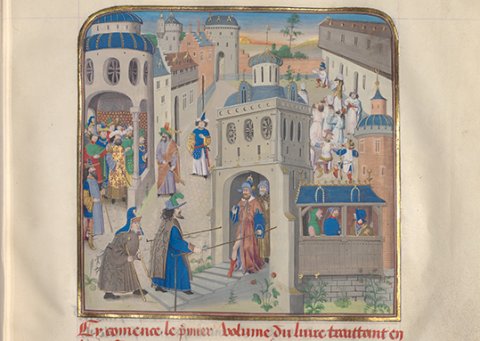 Cy comence le p̃mier volume du liure traittant en